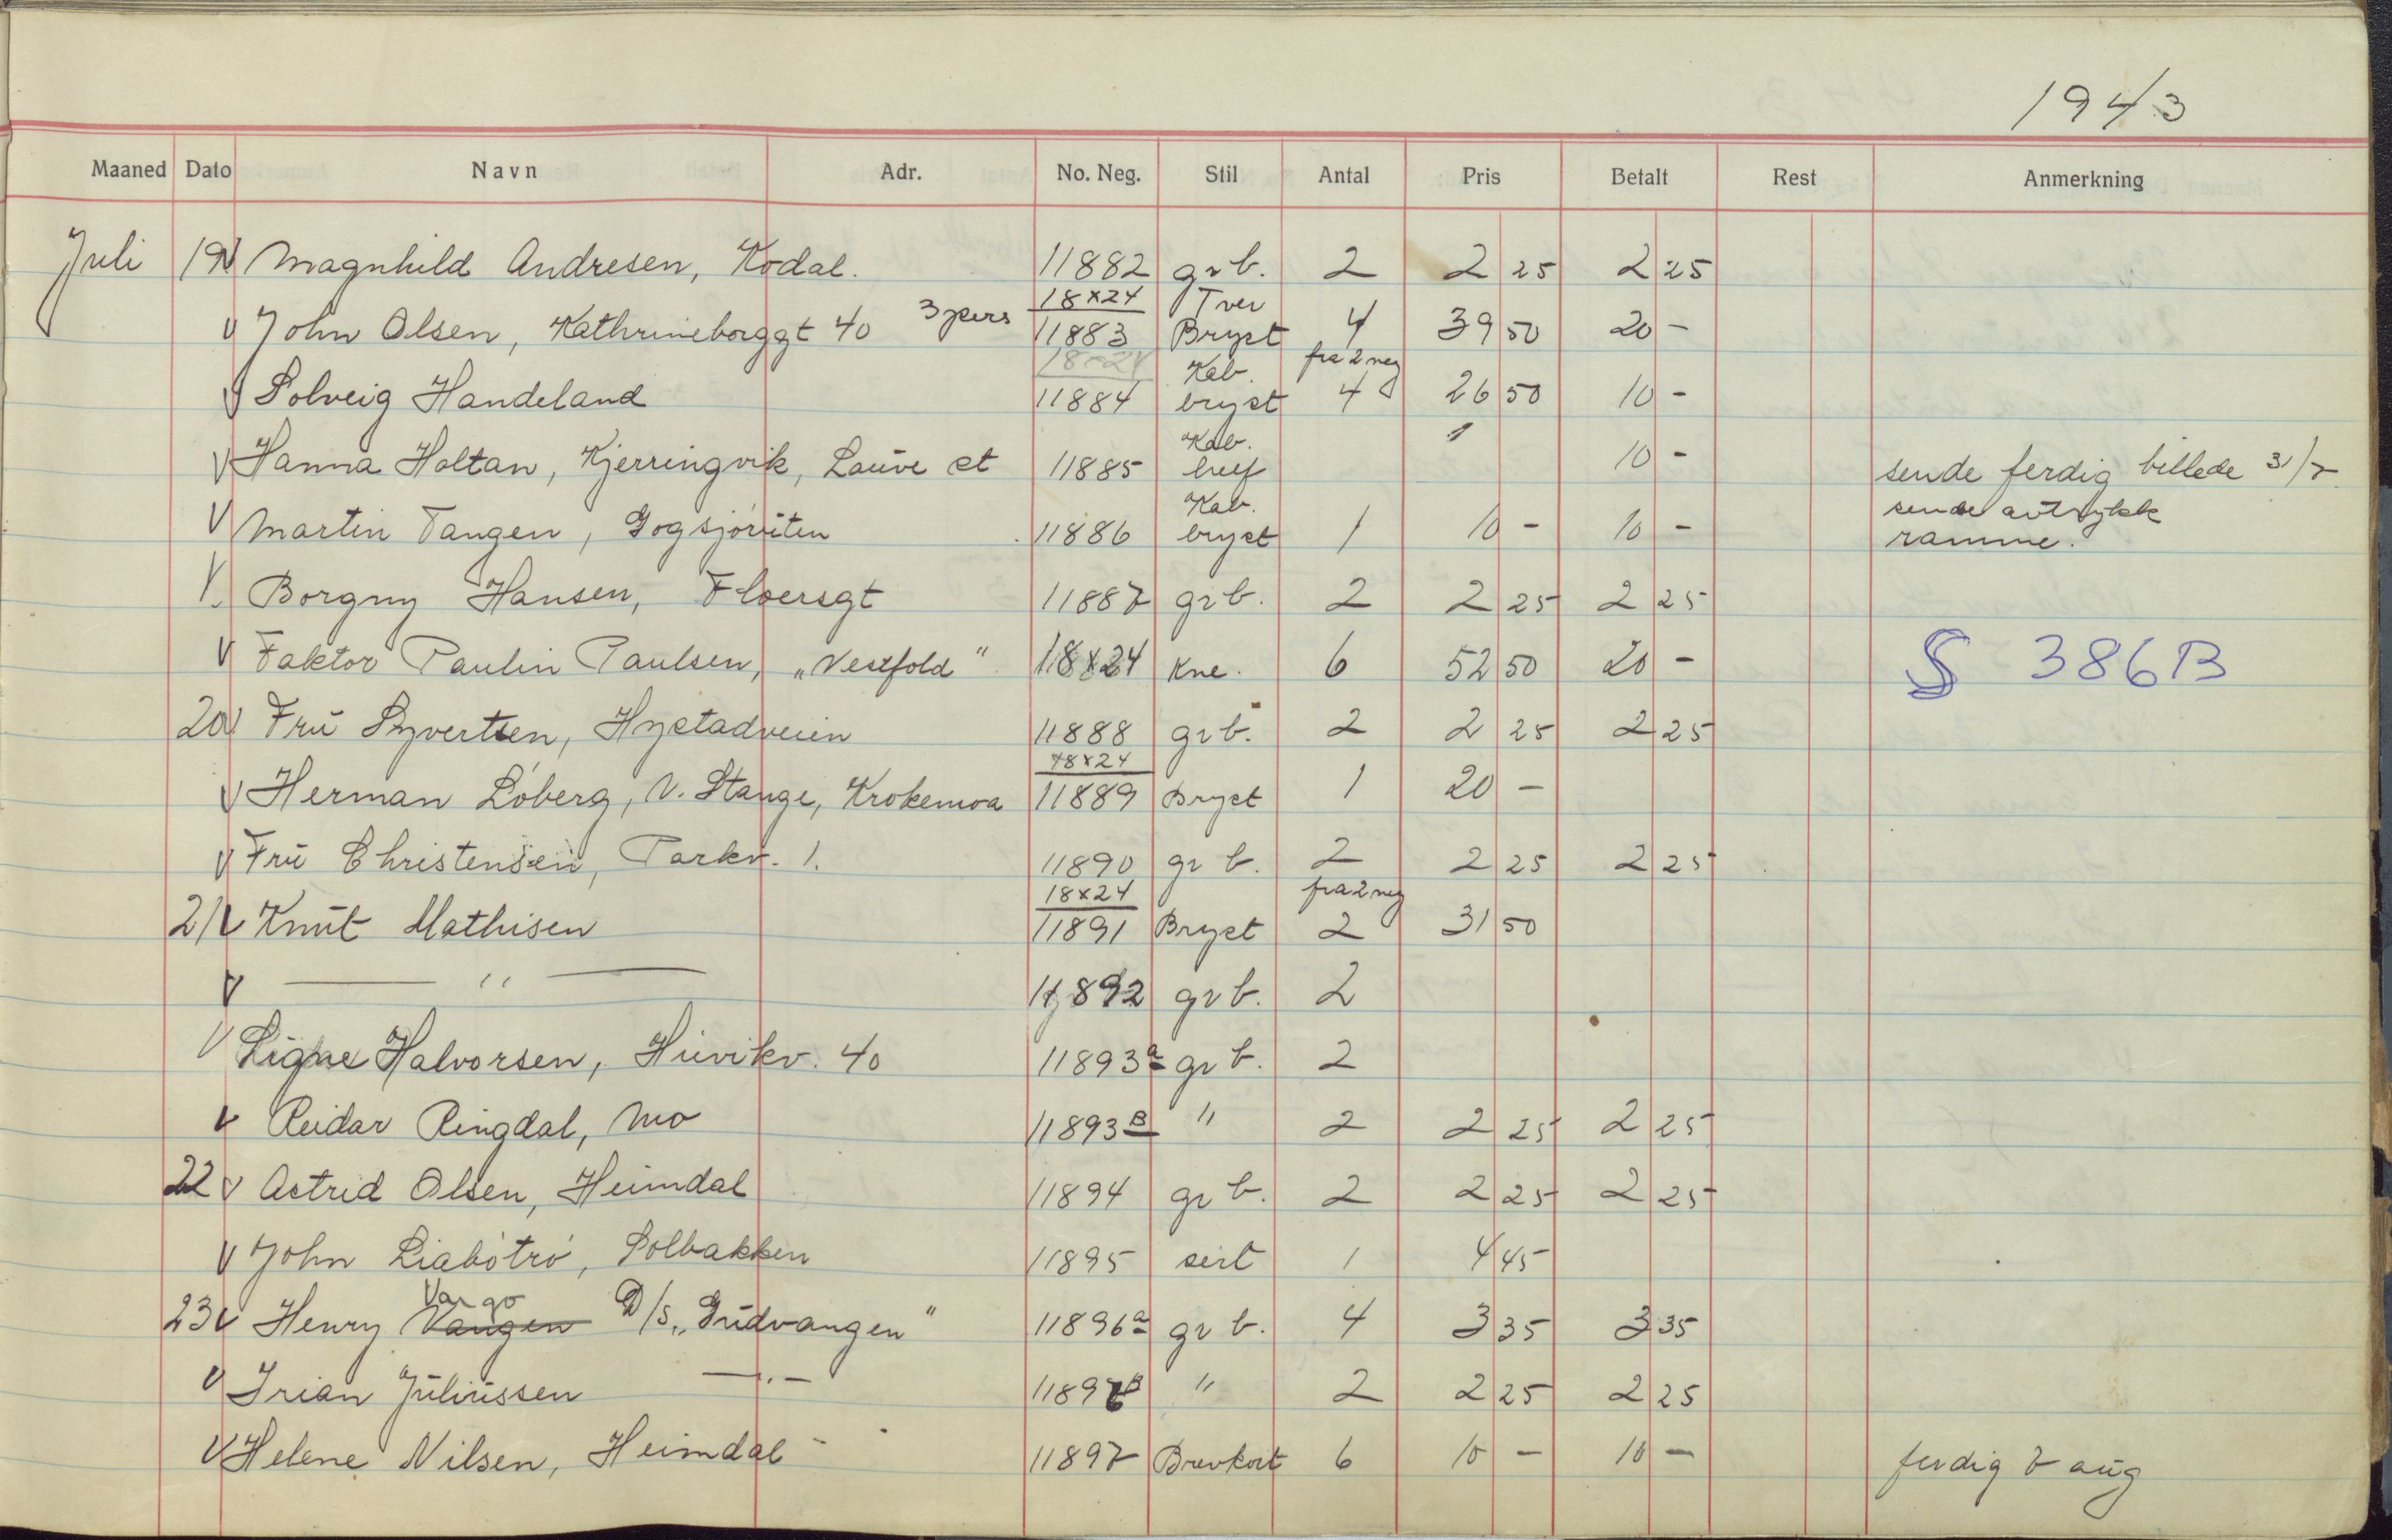 1943
Maaned Dato Navn Adr. No. Neg. Stil Antal Pris Betalt Rest Anmerkning
Juli 19 V Magnhild Andresen, Kodal. 11882 gr b. 2 2 25 2 25
18x24 Tver
V John Olsen, Kathrineborggt 40 3 pers 11883 Bryst 4 39 50 20 -
18x24 Kab. fra 2 neg
V Solveig Handeland 11884 bryst 4 26 50 10 -
Kab.
V Hanna Holtan, Kjerringvik, Lauve st 11885 10 - sende ferdig billede 31/7
Kab. sende avtrykk
V Martin Tangen, Gogsjøruten 11886 bryst 1 10 - 10 - ramme.
V. Borgny Hansen, Floersgt 11887 gr b. 2 2 25 2 25
V Faktor Paulin Paulsen, „Vestfold“ 18x24 Kne. 6 52 50 20 - S 386B
20 V Fru Syvertsen, Hystadveien 11888 gr b. 2 2 25 2 25
18x24
V Herman Löberg, V. Stange, Krokemoa 11889 Bryst 1 20 -
V Fru Christensen, Parkv. 1. 11890 gr b. 2 2 25 2 25
18x24 fra 2 neg
21 V Knut Mathisen 11891 Bryst 2 31 50
V — " — 11892 gr b. 2
V Signe Halvorsen, Huvikv. 40 11893a gr b. 2
V Reidar Ringdal, Mo 11893B " 2 2 25 2 25
22 V Astrid Olsen, Heimdal 11894 gr b. 2 2 25 2 25
V John Liabötrö, Solbakken 11895 seit 1 4 45
Vargo
23 V Henry Vangen D/S „Gudvangen“ 11896a gr b. 4 3 35 3 35
V Irian Juliussen — " — 11896B " 2 2 25 2 25
V Helene Nilsen, Heimdal 11897 Brevkort 6 10 - 10 - ferdig 7 aug